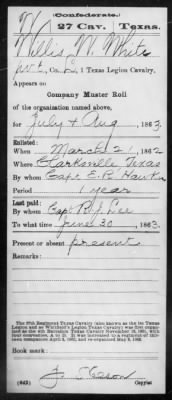 (Confederate.)
W 27 Cav. Texas.
Willis W. White
Pvt, Co. L, 1 Texas Legion Cavalry.
Appears on
Company Muster Roll
of the organization named above,
for July & Aug, 1863.
Enlisted:
When March 2, 1862
Where Clarksville Texas
By whom Capt. E. B.
Period 1 year
Last paid:
By whom Capt. B. J. Lee
To what time June 30, 1863.
Present or absent present
Remarks:
The 27th Regiment Texas Cavalry (also known as the 1st Texas
Legion and as Whitfield's Legion Texas Cavalry) was first organ-
ized as the 4th Battalion Texas Cavalry
Book mark:
(642)
Copyist.